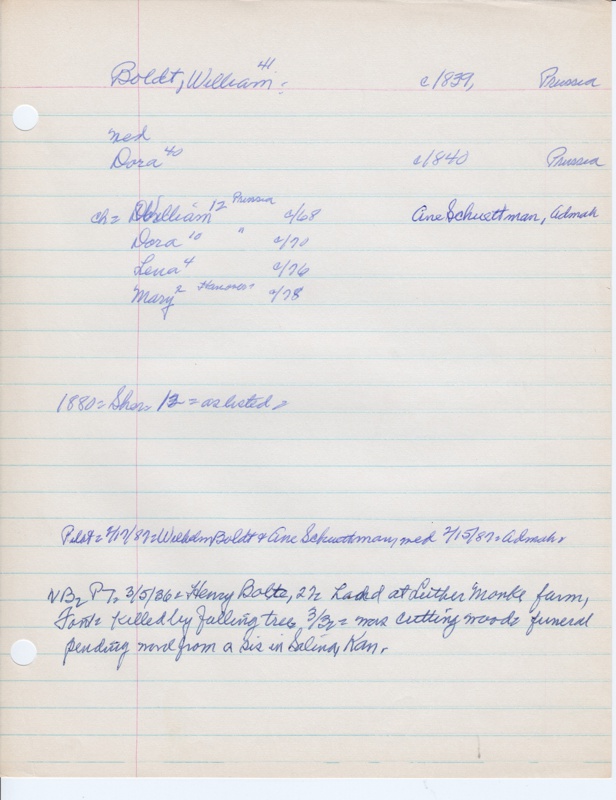 Boldt, William 41 - c/1839, Prussia
med
Dora 40 c/1840 Prussia
ch = William 12 Prussia c/68 Ane Schuettman, Admah
Dora 10 " c/70
Lena 4 c/76
Mary 2 Hanover c/78
1880 = Sher 12 = as listed =
Pilot = 2/17/87 = Wilhelm Boldt & Ane Schuettman, med 2/15/87 = Admah.
3/5/36 = Henry Boltz, 27 = Laded at Luther Monke farm,
Font = Killed by falling tree 3/3 = was cutting wood = funeral
pending word from a sis in Salina, Kan.